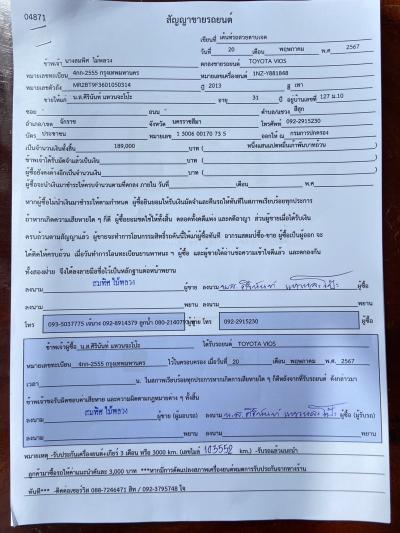 04871
สัญญาขายรถยนต์
เขียนที่ เต็นท์รถสวยตาบเจต
วันที่ 20 เดือน พฤษภาคม พ.ศ 2567
ข้าพเจ้า นางสมทิศ ไม้หลวง ตกลงขายรถยนต์ TOYOTA VIOS
หมายเลขทะเบียน 4กก-2555 กรุงเทพมหานคร หมายเลขเครื่องยนต์ 1NZ-Y881848
หมายเลขตัวถัง MR2BT9F3601050314 ปี 2013 สี เทา
ขายให้แก่ น.ส.ศิรินันท์ แหวนจะโป๊ะ อายุ 31 ปี อยู่บ้านเลขที่ 127 ม.10
ซอย - ถนน - ตำบล/แขวง สีสุก
อำเภอ/เขต จักราช จังหวัด นครราชสีมา โทรศัพท์ 092-2915230
บัตร ประชาชน หมายเลข 1 3006 00170 73 5 ออกให้ ณ กรมการปกครอง
เป็นจำนวนเงินทั้งสิ้น 189,000 บาท ( หนึ่งแสนแปดหมื่นเก้าพันบาทถ้วน )
ข้าพเจ้าได้รับมัดจำแล้วเป็นเงิน บาท ( )
ผู้ซื้อยังคงค้างอีกเป็นจำนวนเงิน บาท ( )
ผู้ซื้อจะนำเงินมาชำระให้ครบจำนวนตามที่ตกลง ภายใน วันที่ เดือน พ.ศ
หากผู้ซื้อไม่นำเงินมาชำระให้ตามกำหนด ผู้ซื้อยินยอมให้ริบเงินมัดจำและคืนรถให้ทันทีในสภาพเรียบร้อยทุกประการ
ถ้าหากเกิดความเสียหายใด ๆ ก็ดี ผู้ซื้อยอมชดใช้ให้ทั้งสิ้น ตลอดทั้งคดีแพ่ง และคดีอาญา ส่วนผู้ขายเมื่อได้รับเงิน
ครบถ้วนตามสัญญาแล้ว ผู้ขายจะทำการโอนกรรมสิทธิ์รถคันนี้ให้แก่ผู้ซื้อทันที อากรแสตมป์ซื้อ-ขาย ผู้ซื้อเป็นผู้ออก จะ
ได้คิดให้ครบถ้วน เมื่อวันทำการโอนทะเบียนยานพาหนะ ฯ ผู้ซื้อ และผู้ขายได้อ่านข้อความเข้าใจดีแล้ว และตกลงกัน
ทั้งสองฝ่าย จึงได้ลงลายมือชื่อไว้เป็นหลักฐานต่อหน้าพยาน
ลงนาม สมทิศ ไม้หลวง ผู้ขาย ลงนาม น.ส. ศิรินันท์ แหวนจะโป๊ะ ผู้ซื้อ
ลงนาม พยาน ลงนาม พยาน
โทร 093-5037775 092-8914379 ลูกน้ำ ผู้ขาย โทร 092-2915230 ผู้ซื้อ
ข้าพเจ้าผู้ซื้อ น.ส.ศิรินันท์ แหวนจะโป๊ะ ได้รับรถยนต์ TOYOTA VIOS
หมายเลขทะเบียน 4กก-2555 กรุงเทพมหานคร ไว้ในครอบครอง เมื่อวันที่ 20 เดือน พฤษภาคม พ.ศ. 2567
เวลา น. ในสภาพเรียบร้อยทุกประการหากเกิดการเสียหายใด ๆ ก็ดีหลังจากที่รับรถยนต์ ดังกล่าวมา
ข้าพเจ้าขอรับผิดชอบค่าเสียหาย และความผิดตามกฎหมายต่าง ๆ ทั้งสิ้น
ลงนาม สมทิศ ไม้หลวง ผู้ขาย (ผู้มอบรถ) ลงนาม น.ส. ศิรินันท์ แหวนจะโป๊ะ ผู้ซื้อ (ผู้รับรถ)
ลงนาม พยาน ลงนาม พยาน
หมายเหตุ -รับประกันเครื่องยนต์+เกียร์ 3 เดือน หรือ 3000 km. (เลขไมล์ 103552 km.) -รับรถแล้วแนะนำ
ลูกค้ามาซื้อรถให้ค่าแนะนำคันละ 3,000 บาท ***หากมีการดัดแปลงสภาพเครื่องยนต์หมดการรับประกันจากทางร้าน
ทันที*** -ติดต่อเซอร์วิส 088-7246471 สิท / 092-3795748 โจ